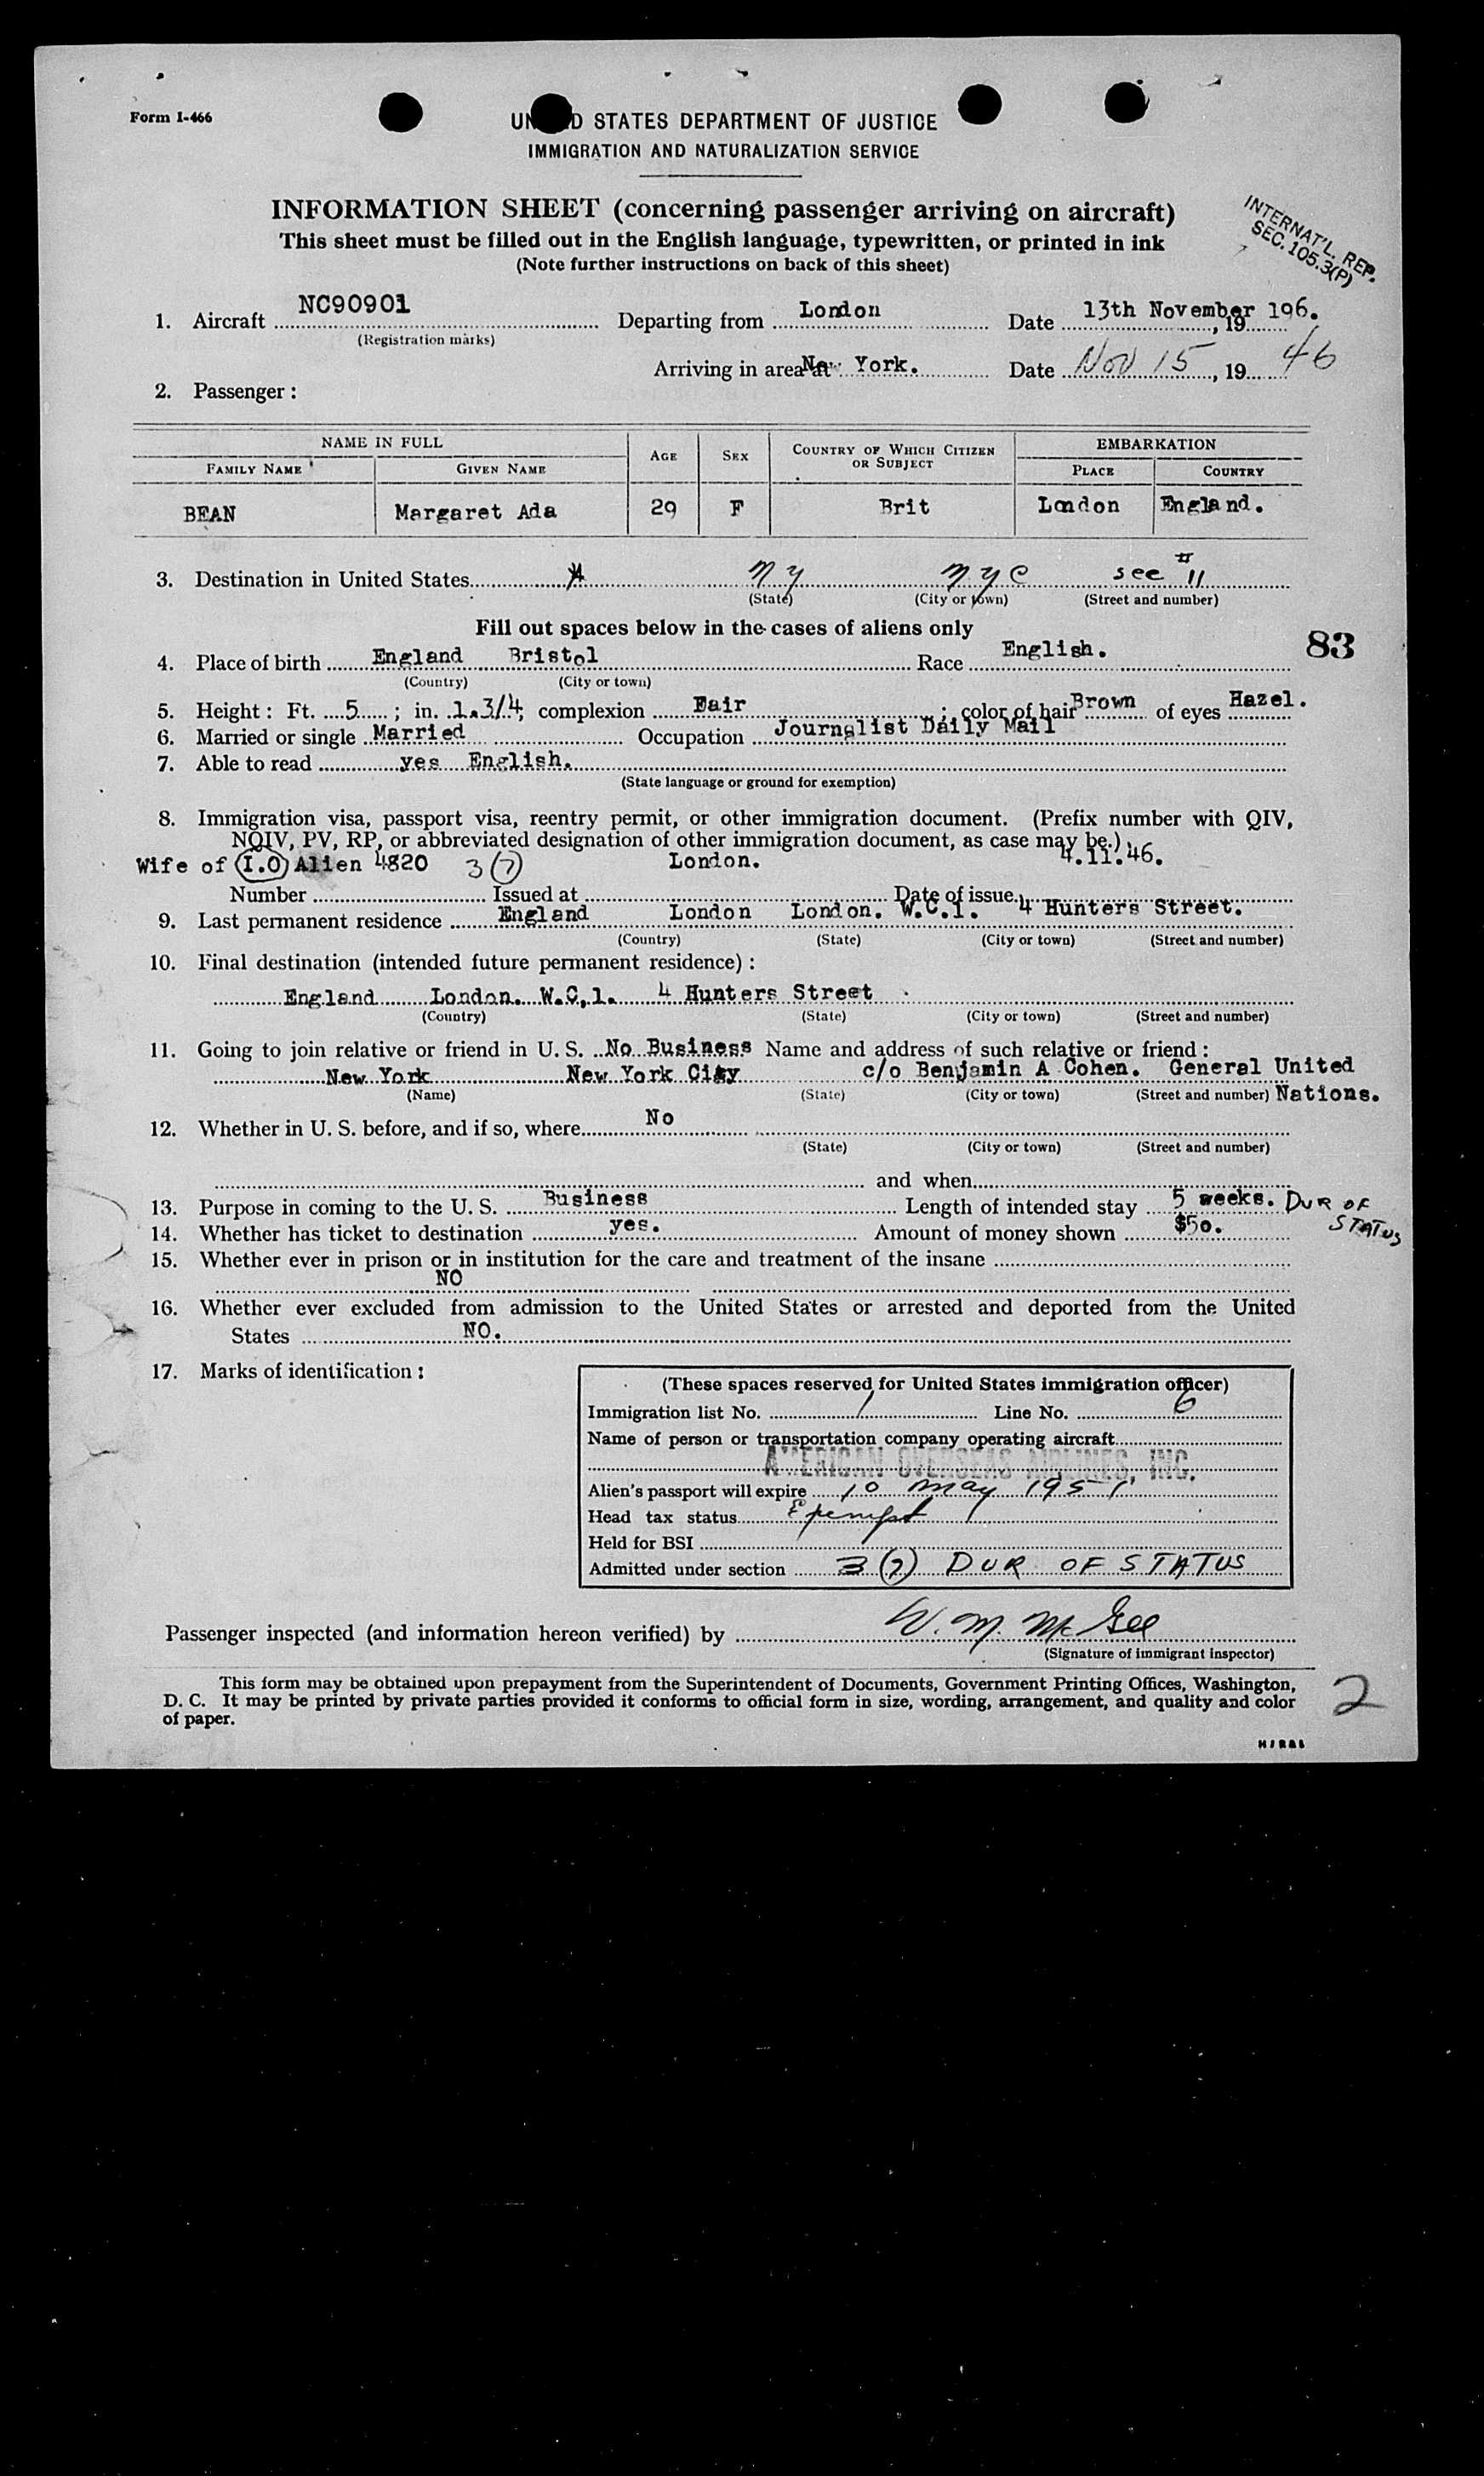 Form I-466
UNITED STATES DEPARTMENT OF JUSTICE
IMMIGRATION AND NATURALIZATION SERVICE
INFORMATION SHEET (concerning passenger arriving on aircraft)
This sheet must be filled out in the English language, typewritten, or printed in ink
(Note further instructions on back of this sheet)
INTERNAT'L. REP.
SEC. 105.3(P)
1. Aircraft NC90901 Departing from London Date 13th November 196. , 19
(Registration marks)
Arriving in area at New York. Date Nov 15, 19 46
2. Passenger :
NAME IN FULL AGE SEX COUNTRY OF WHICH CITIZEN OR SUBJECT EMBARKATION
FAMILY NAME GIVEN NAME PLACE COUNTRY
BEAN Margaret Ada 29 F Brit London England.
3. Destination in United States NY NYC see # 11
(State) (City or town) (Street and number)
Fill out spaces below in the cases of aliens only
83
4. Place of birth England Bristol Race English.
(Country) (City or town)
5. Height : Ft. 5 ; in. 1.3/4, complexion Fair ; color of hair Brown of eyes Hazel.
6. Married or single Married Occupation Journalist Daily Mail
7. Able to read yes English.
(State language or ground for exemption)
8. Immigration visa, passport visa, reentry permit, or other immigration document. (Prefix number with QIV,
NQIV, PV, RP, or abbreviated designation of other immigration document, as case may be.)
Wife of I.O Alien 4820 3(7) London. 4.11.46.
Number Issued at Date of issue
9. Last permanent residence England London London. W.C.1. 4 Hunters Street.
(Country) (State) (City or town) (Street and number)
10. Final destination (intended future permanent residence) :
England London. W.C,1. 4 Hunters Street
(Country) (State) (City or town) (Street and number)
11. Going to join relative or friend in U. S. No Business Name and address of such relative or friend :
New York New York City c/o Benjamin A Cohen. General United
(Name) (State) (City or town) (Street and number) Nations.
12. Whether in U. S. before, and if so, where No
(State) (City or town) (Street and number)
and when
13. Purpose in coming to the U. S. Business Length of intended stay 5 weeks. DUR OF
STATUS
14. Whether has ticket to destination yes. Amount of money shown $50.
15. Whether ever in prison or in institution for the care and treatment of the insane
NO
16. Whether ever excluded from admission to the United States or arrested and deported from the United
States NO.
17. Marks of identification :
(These spaces reserved for United States immigration officer)
Immigration list No. 1 Line No. 6
Name of person or transportation company operating aircraft
AMERICAN OVERSEAS AIRLINES, INC.
Alien's passport will expire 10 May 1951
Head tax status Exempt
Held for BSI
Admitted under section 3 (7) DUR OF STATUS
Passenger inspected (and information hereon verified) by W. M. McGee
(Signature of immigrant inspector)
This form may be obtained upon prepayment from the Superintendent of Documents, Government Printing Offices, Washington,
D. C. It may be printed by private parties provided it conforms to official form in size, wording, arrangement, and quality and color
of paper.
2